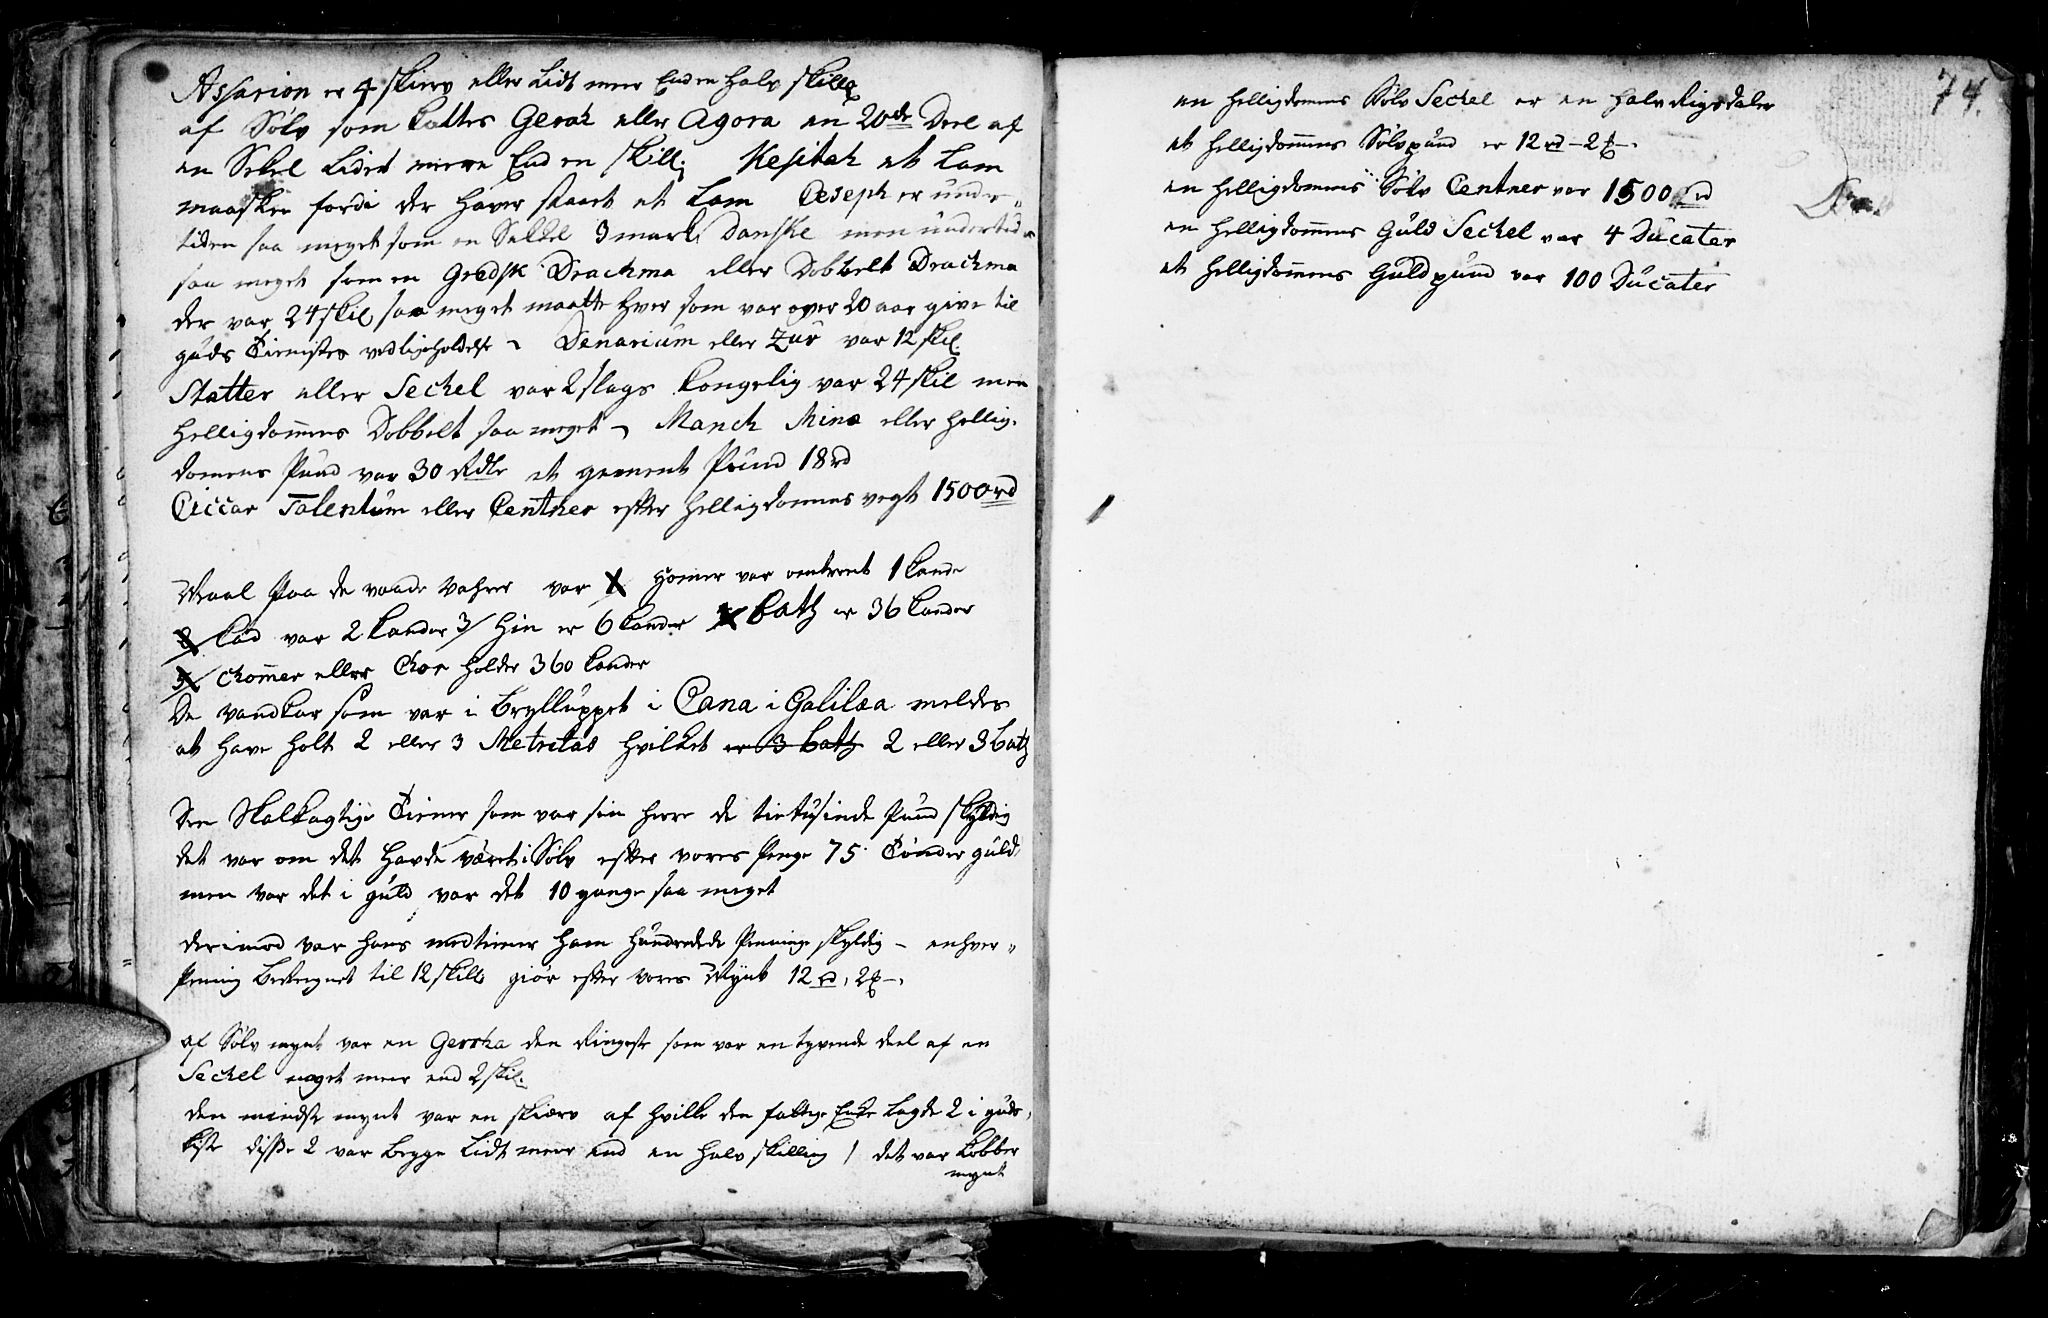 Assarion er 4 skierv eller Lidt meer End en halv skill
af Sølv som kaltes Gerah eller Agora en 20de Deel af
en Sekel Lidet mere End en skill; Kesitah et Lam
maaskee fordi der haver staaet et Lam Ceseph er under„
tiden saa meget som en Sekkel 3 mark Danske men undertiden
saa meget som en Grædsk Drachma eller Dobbelt Drachma
der var 24 skil, saa meget maatte hver som var over 20 aar give til
guds Tienistes vedligeholdelse ~ Denarium eller Zur var 12 skil.
Statter eller Sechel var 2 slags kongelig var 24 skil men
helligdommens Dobbelt saa meget ~ Maneh Mina eller hellig-
domens Pund var 30 Rdlr et gement Pund 18 rd
Ciccar Talentum eller Centner efter helligdommens vegt 1500 rd
Maal Paa de vaade vahrer var Homer var omtrent 1 kande
Cad var 2 kander 3/ Hin er 6 kander bath er 36 kander
chomer eller Chor holder 360 kander
De vandkar som var i brylluppet i Cana i Galilæa meldes
at have holt 2 eller 3 Metretas hvilket er 3 bath 2 eller 3 bath
Den Skalkagtige Tiener som var sin herre de tietusinde Pund skyldig
det var om det havde været i Sølv efter vores Penge 75 Tønder guld
men var det i guld var det 10 gange saa meget
derimod var hans medtiener ham hundrede Penninge skyldig – enhver„
Pening beregnet til 12 skill giør efter vores Mynt 12 rd, 2 ꝝ –.
af Sølv mynt var en Gersha den Ringeste som var en tyvende deel af en
Sechel noget meer end 2 skil.
den mindste mynt var en skierv af hvilke den fattige Enke lagde 2 i guds,
kiste disse 2 var begge Lidt meer end en halv skilling / det var kobber
mynt
74.
en helligdommens Sølv Sechel er en halv Rigsdaler
et helligdommens Sølvpund er 12 rd – 2 ꝝ –.
en helligdommens Sølv Centner var 1500 rd
en helligdommens Guld Sechel var 4 Ducater
et helligdommens Guldpund var 100 Ducater